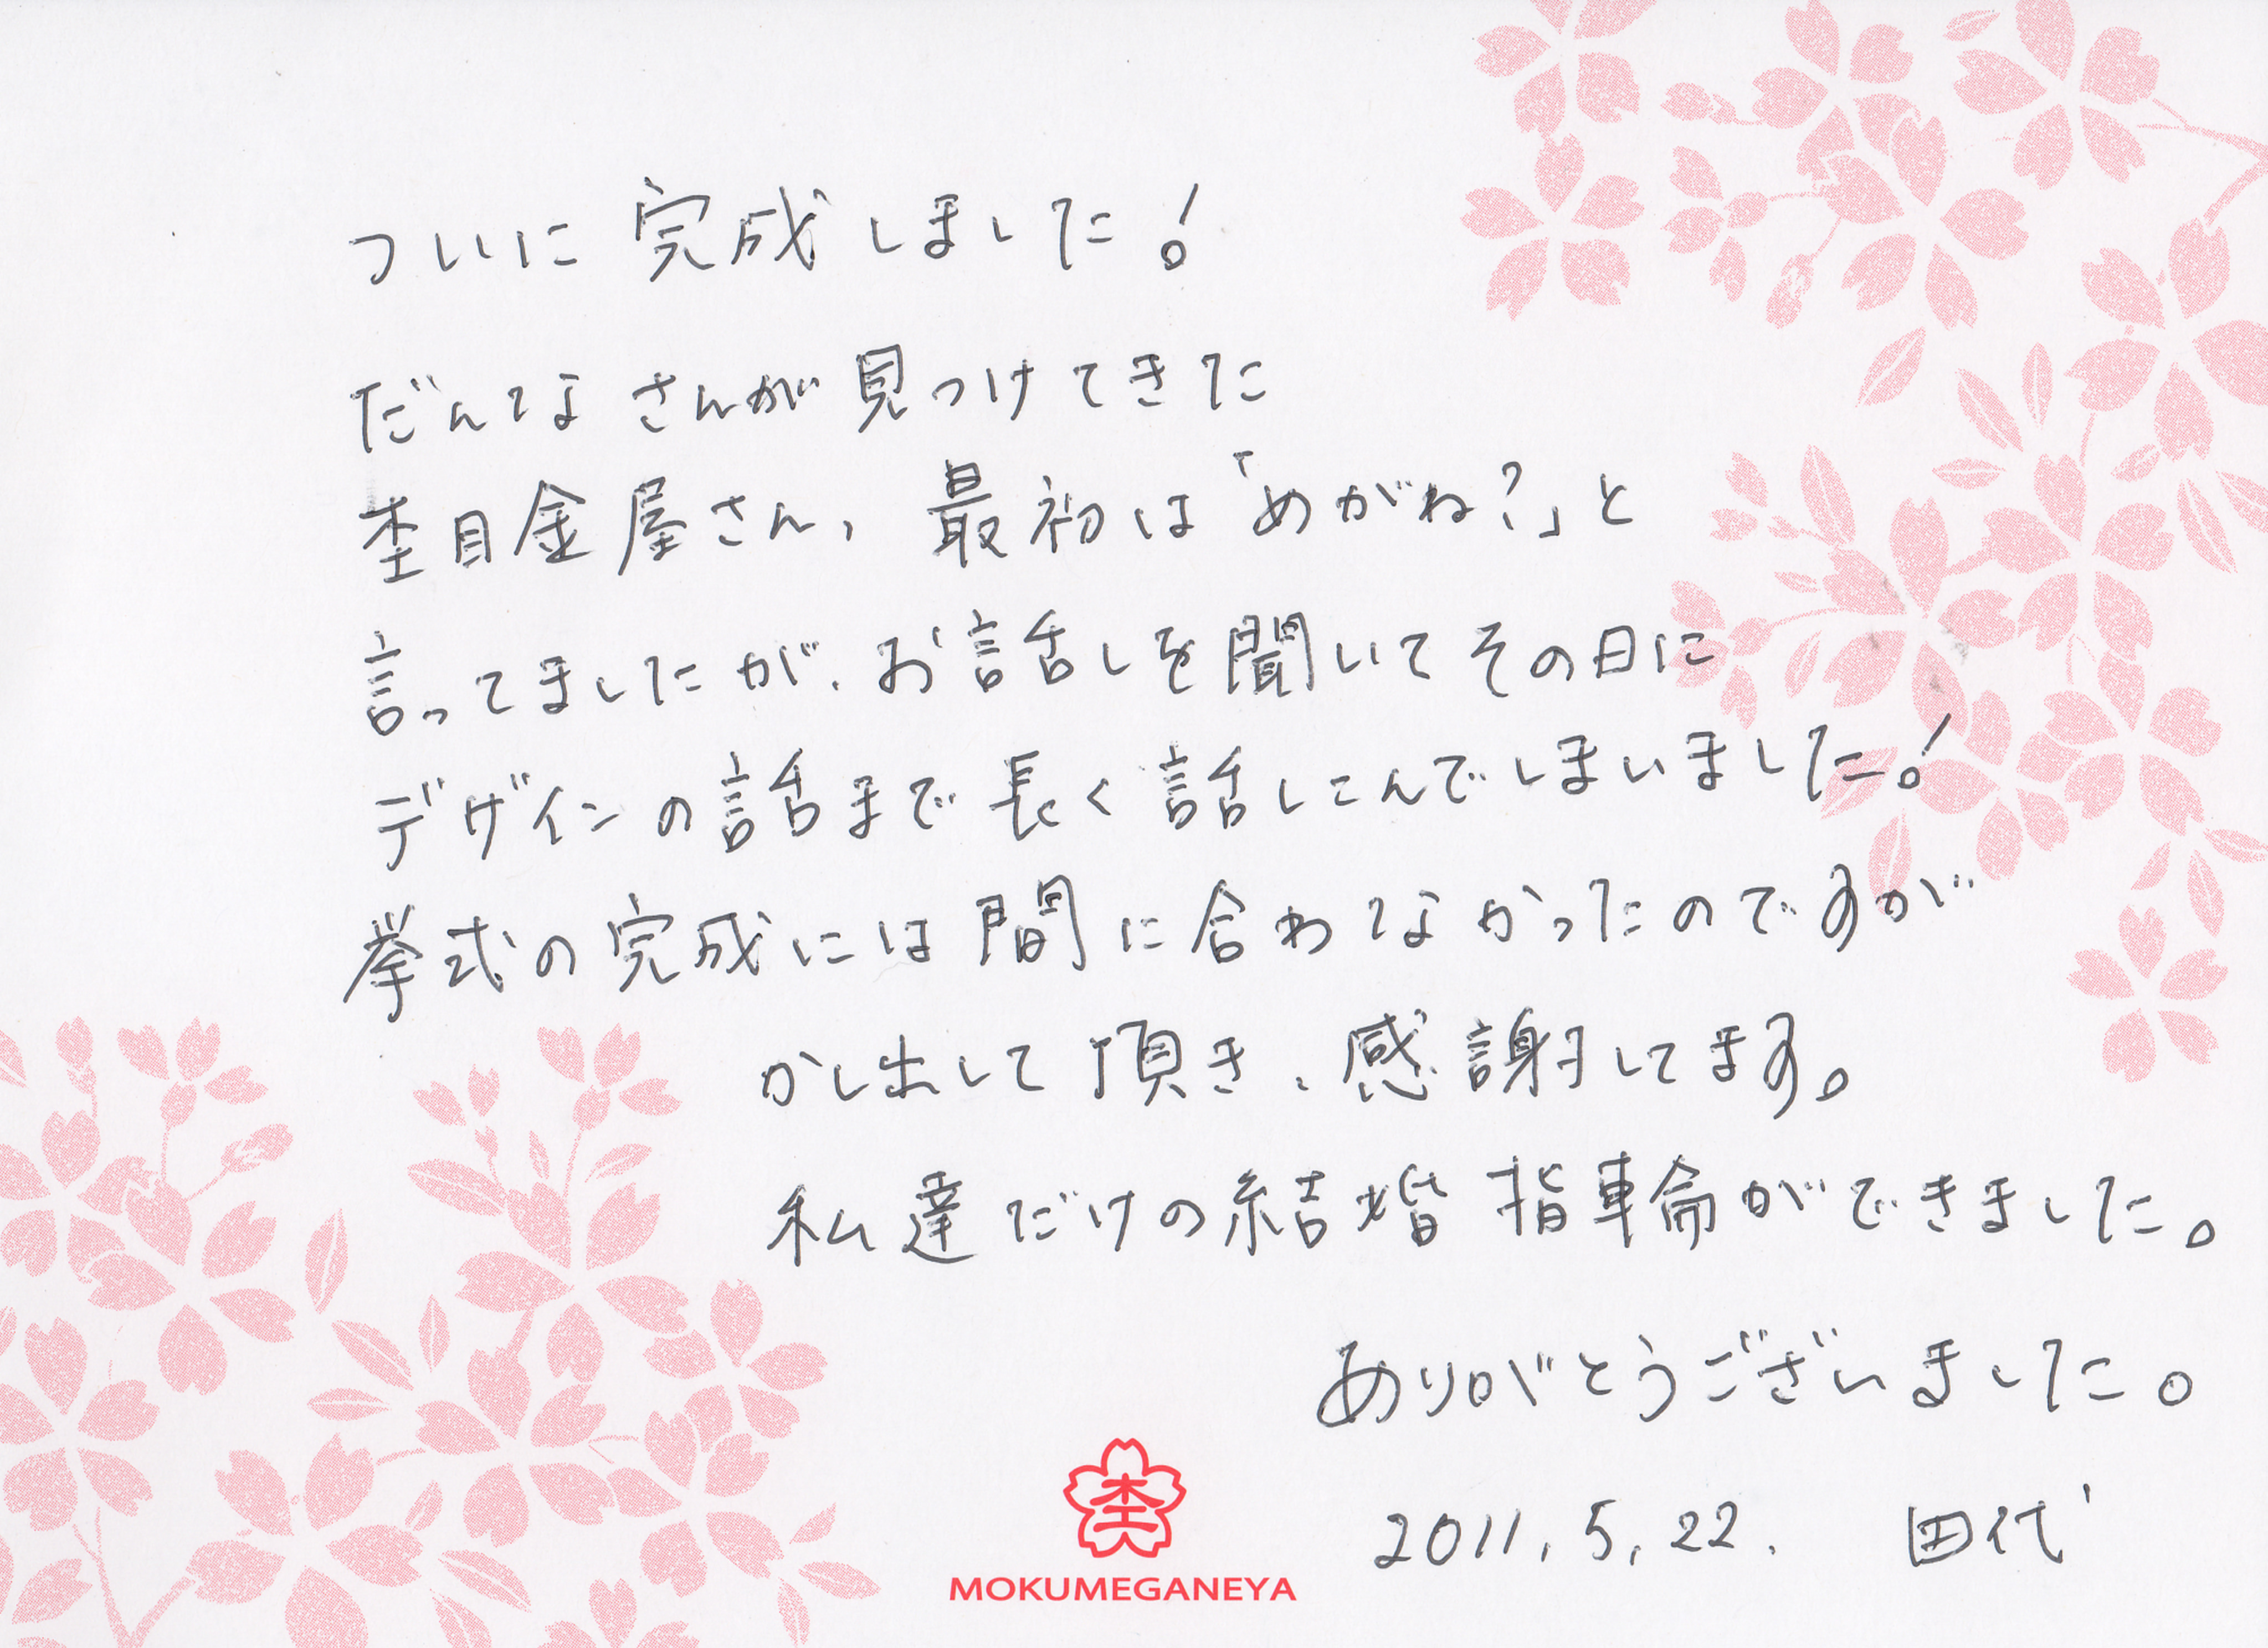 ついに完成しました!
だんなさんが見つけてきた
杢目金屋さん、最初は「めがね?」と
言ってましたが、お話しを聞いてその日に
デザインの話まで長く話しこんでしまいました!
挙式の完成には間に合わなかったのですが
かし出して頂き、感謝してます。
私達だけの結婚指輪ができました。
ありがとうございました。
2011.5.22. 田代
杢
MOKUMEGANEYA